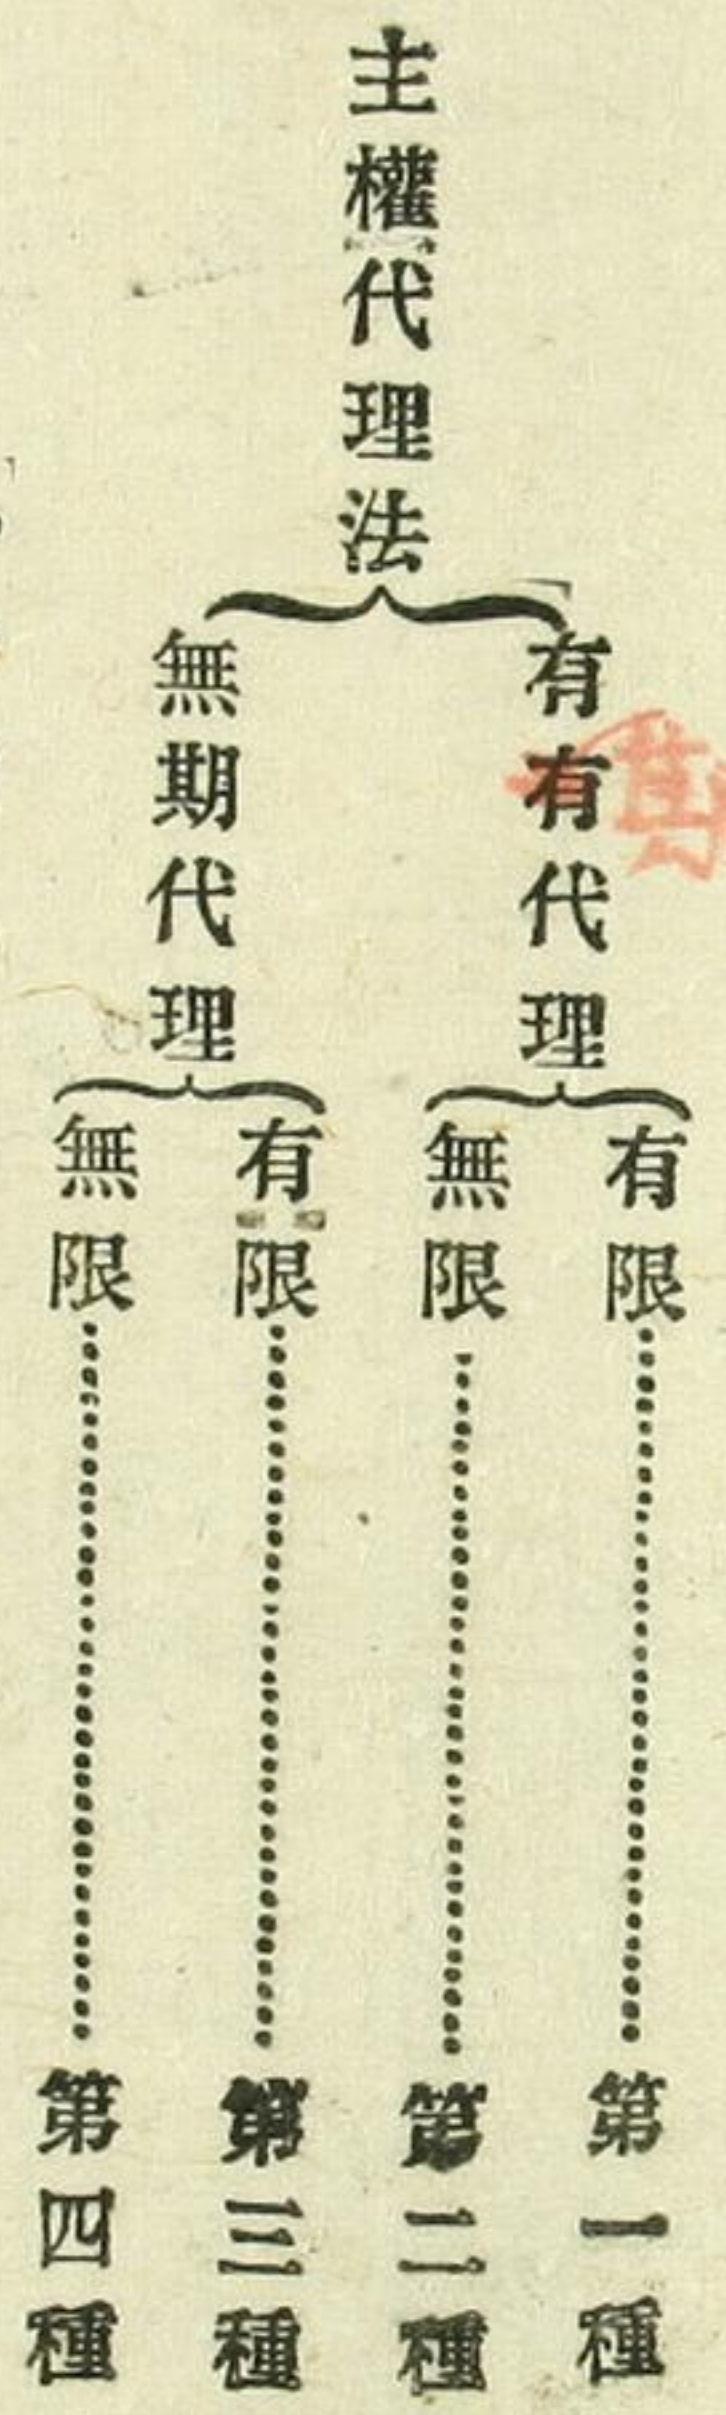 主權代理法
有有代理
有限……第一種
無限……第二種
無期代理
有限……第三種
無限……第四種